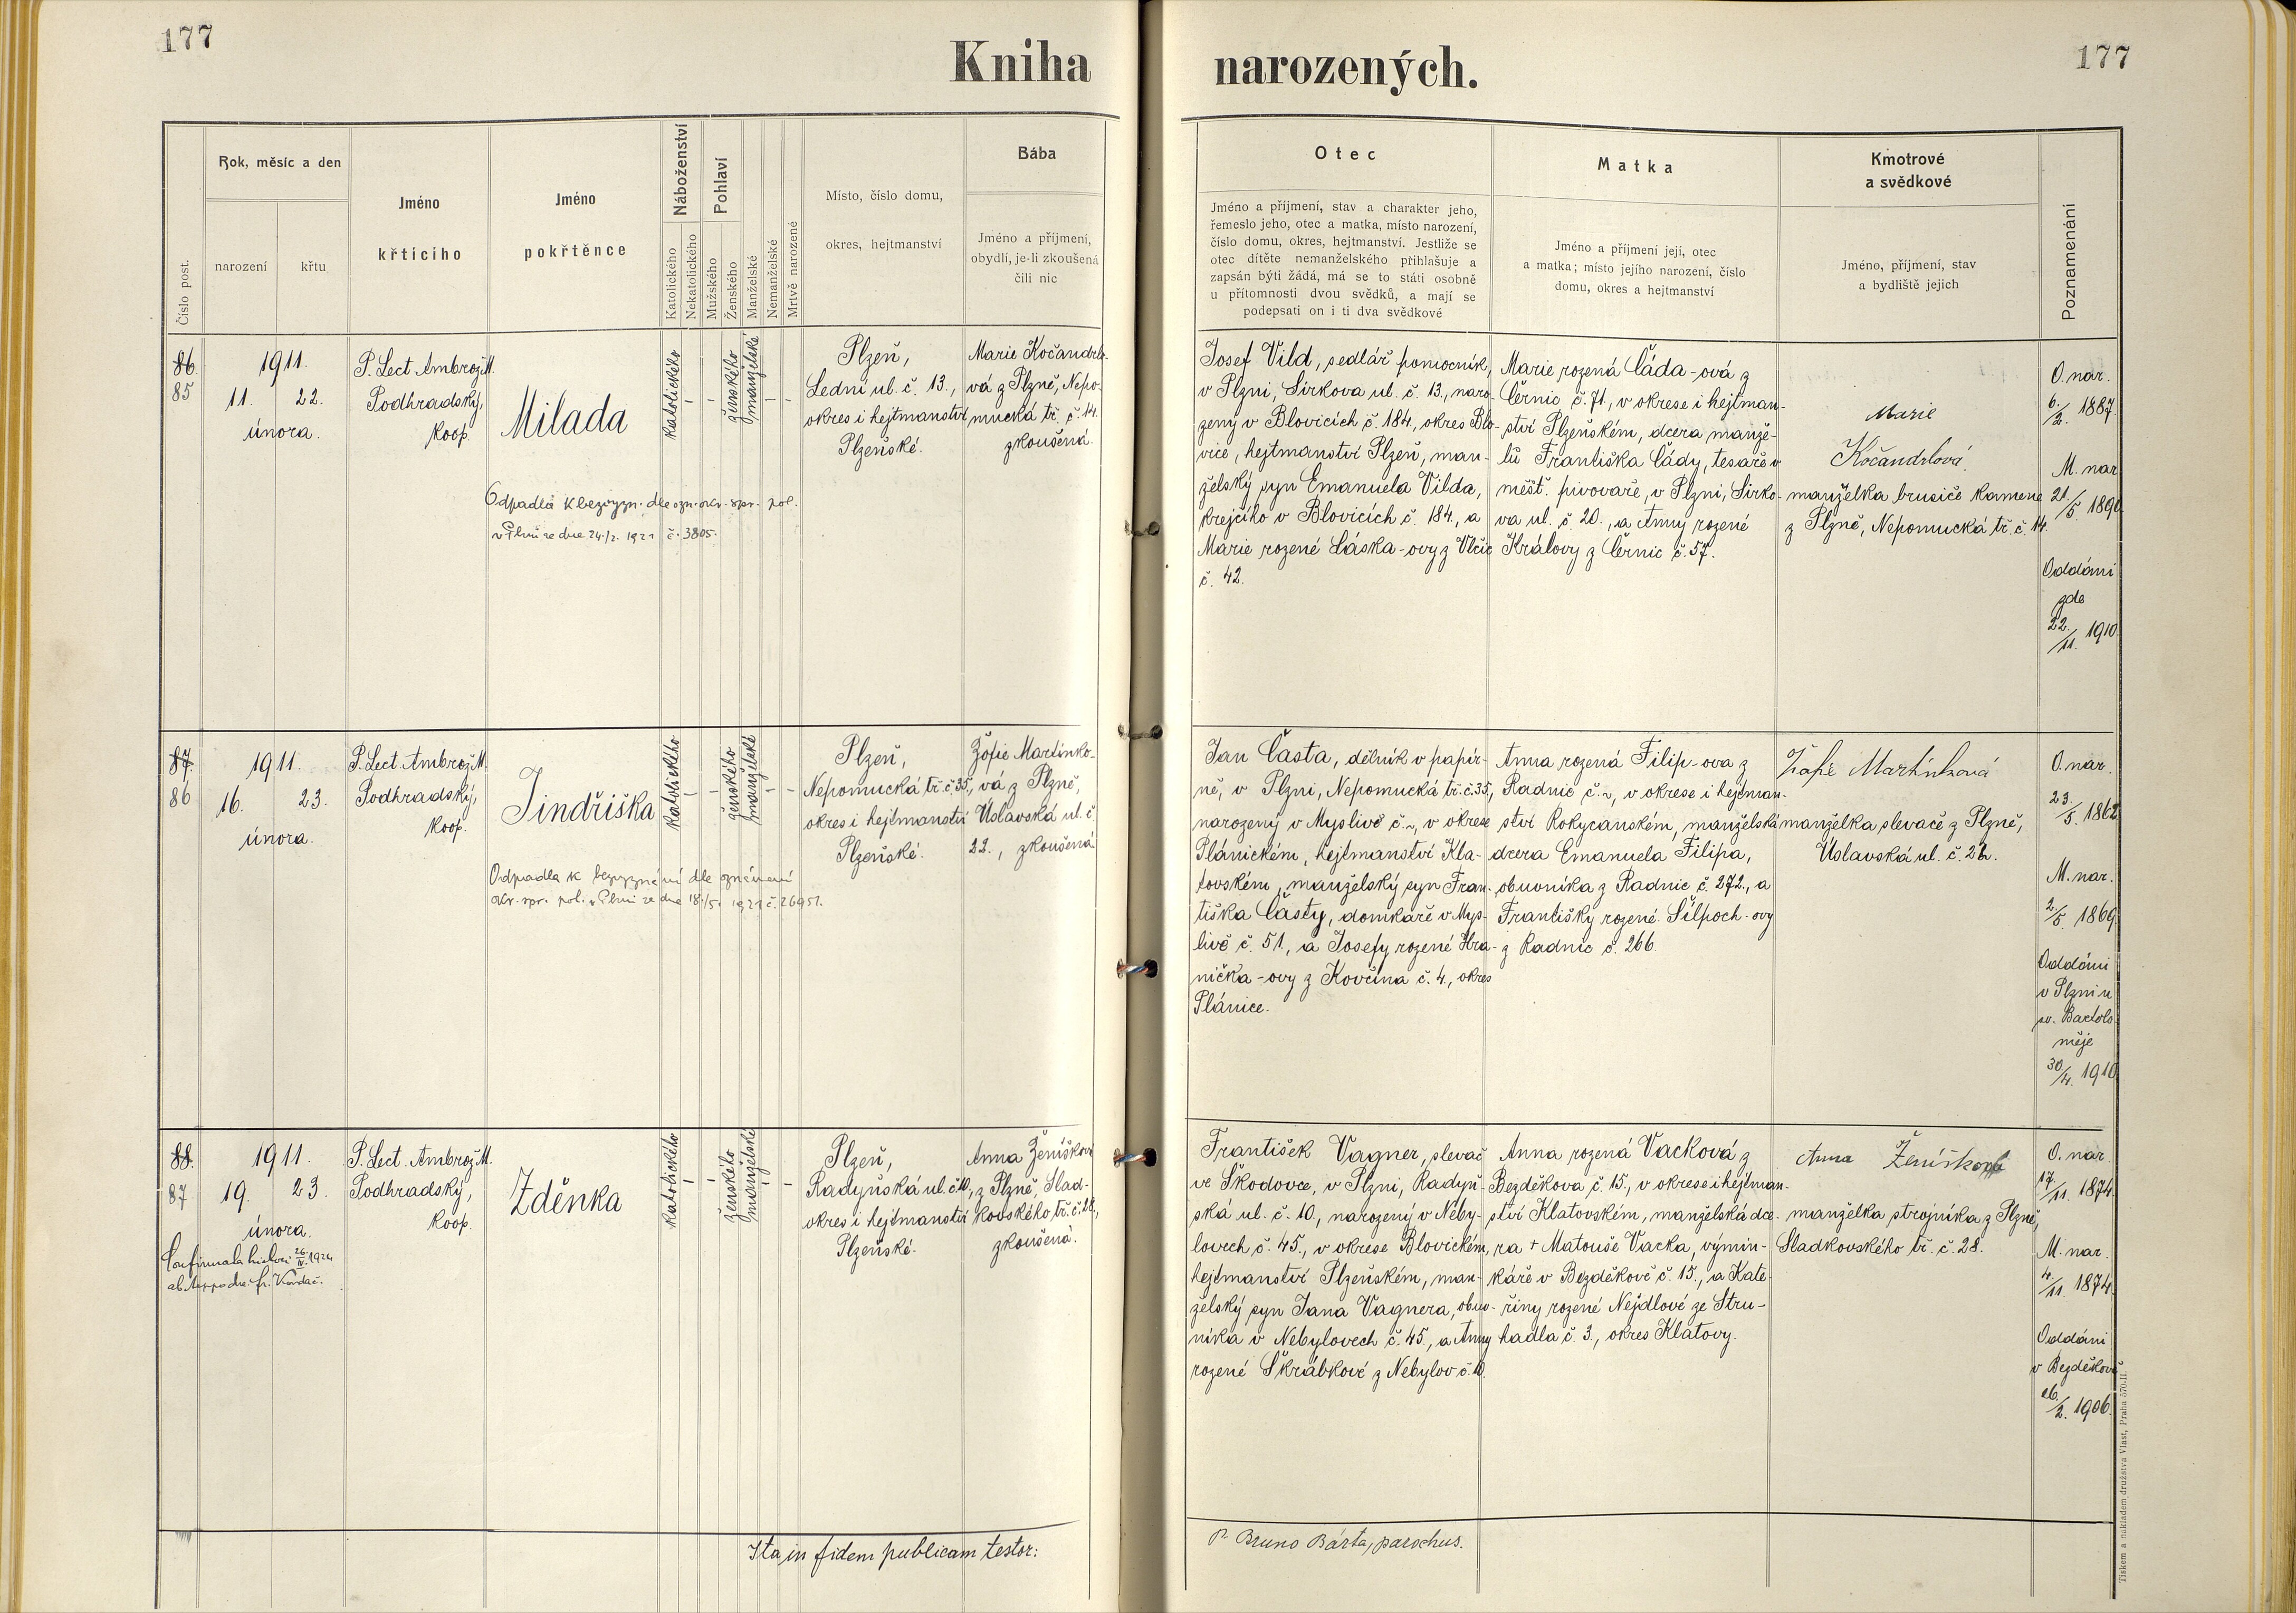 177
Kniha
narozených.
177
Číslo post.
Rok, měsíc a den
narození
křtu
Jméno
křticího
Jméno
pokřtěnce
Náboženství
Katolického
Nekatolického
Pohlaví
Mužského
Ženského
Manželské
Nemanželské
Mrtvě narozené
Místo, číslo domu,
okres, hejtmanství
Bába
Jméno a příjmení,
obydlí, je-li zkoušená
čili nic
Otec
Jméno a příjmení, stav a charakter jeho,
řemeslo jeho, otec a matka, místo narození,
číslo domu, okres, hejtmanství. Jestliže se
otec dítěte nemanželského přihlašuje a
zapsán býti žádá, má se to státi osobně
u přítomnosti dvou svědků, a mají se
podepsati on i ti dva svědkové
Matka
Jméno a příjmení její, otec
a matka; místo jejího narození, číslo
domu, okres a hejtmanství
Kmotrové
a svědkové
Jméno, příjmení, stav
a bydliště jejich
Poznamenání
86.
85
1911.
11. 22.
února.
P. Lect. Ambrož M.
Podhradský,
koop.
Milada
Odpadla k bezvyzn. dle ozn. okr. spr. pol.
v Plzni ze dne 24./2. 1921 č. 3805.
katolického
-
-
ženského
manželské
-
-
Plzeň,
Lední ul. č. 13.,
okres i hejtmanství
Plzeňské.
Marie Kočandrlo-
vá z Plzně, Nepo-
mucká tř. č. 14.
zkoušená.
Josef Vild, sedlář pomocník,
v Plzni, Sirkova ul. č. 13, naro-
zený v Blovicích č. 184., okres Blo-
vice, hejtmanství Plzeň, man-
želský syn Emanuela Vilda,
krejčího v Blovicích č. 184., a
Marie rozené Láska-ovy z Vlčic
č. 42.
Marie rozená Čáda-ová z
Černic č. 71., v okrese i hejtman-
ství Plzeňském, dcera manže-
lů Františka Čády, tesaře v
měšť. pivovaře, v Plzni, Sirko-
va ul. č. 20., a Anny rozené
Královy z Černic č. 57.
Marie
Kočandrlová
manželka brusiče kamene
z Plzně, Nepomucká tř. č. 14.
O. nar.
6./2. 1887.
M. nar.
21./5. 1890
Oddáni
zde
22./11. 1910.
87.
86
1911.
16. 23.
února.
P. Lect. Ambrož M.
Podhradský,
koop.
Jindřiška
Odpadla k bezvyznání dle oznámení
okr. spr. pol. v Plzni ze dne 18./5. 1921 č. 26951.
katolického
-
-
ženského
manželské
-
-
Plzeň,
Nepomucká tř. č. 35,
okres i hejtmanství
Plzeňské.
Žofie Martínko-
vá z Plzně,
Úslavská ul. č.
22., zkoušená.
Jan Částa, dělník v papír-
ně, v Plzni, Nepomucká tř. č. 35.,
narozený v Myslivě č. ~, v okrese
Plánickém, hejtmanství Kla-
tovském, manželský syn Fran-
tiška Částy, domkaře v Mys-
livě č. 51., a Josefy rozené Hra-
nička-ovy z Kovčína č. 4., okres
Plánice.
Anna rozená Filip-ova z
Radnic č. ~, v okrese i hejtman-
ství Rokycanském, manželská
dcera Emanuela Filipa,
obuvníka z Radnic č. 272., a
Františky rozené Šilpoch-ovy
z Radnic č. 266.
Žofie Martínková
manželka slevače z Plzně,
Úslavská ul. č. 22.
O. nar.
23./5. 1862
M. nar.
2./5. 1869.
Oddáni
v Plzni u
sv. Bartolo-
měje
30./4. 1910
88.
87
1911.
19. 23.
února.
26/IV. 1924
P. Lect. Ambrož M.
Podhradský,
koop.
Zděnka
katolického
-
-
ženského
manželské
-
-
Plzeň,
Radyňská ul. č. 10.,
okres i hejtmanství
Plzeňské.
Anna Ženíšková
z Plzně, Slad-
kovského tř. č. 28.,
zkoušená.
František Vagner, slevač
ve Škodovce, v Plzni, Radyň-
ská ul. č. 10., narozený v Neby-
lovech č. 45., v okrese Blovickém,
hejtmanství Plzeňském, man-
želský syn Jana Vagnera, obuv-
níka v Nebylovech č. 45., a Anny
rozené Škrábkové z Nebylov č. 10.
Anna rozená Vacková z
Bezděkova č. 15., v okrese i hejtman-
ství Klatovském, manželská dce-
ra + Matouše Vacka, výmin-
káře v Bezděkově č. 15., a Kate-
řiny rozené Nejdlové ze Stru-
hadla č. 3., okres Klatovy.
Anna Ženíšková
manželka strojníka z Plzně,
Sladkovského tř. č. 28.
O. nar.
17./11. 1874.
M. nar.
4./11. 1874.
Oddáni
v Bezděkově
/2. 1906.
Ita in fidem publicam testor:
P. Bruno Bárta, parochus.
Tiskem a nákladem družstva Vlast, Praha 570-II.